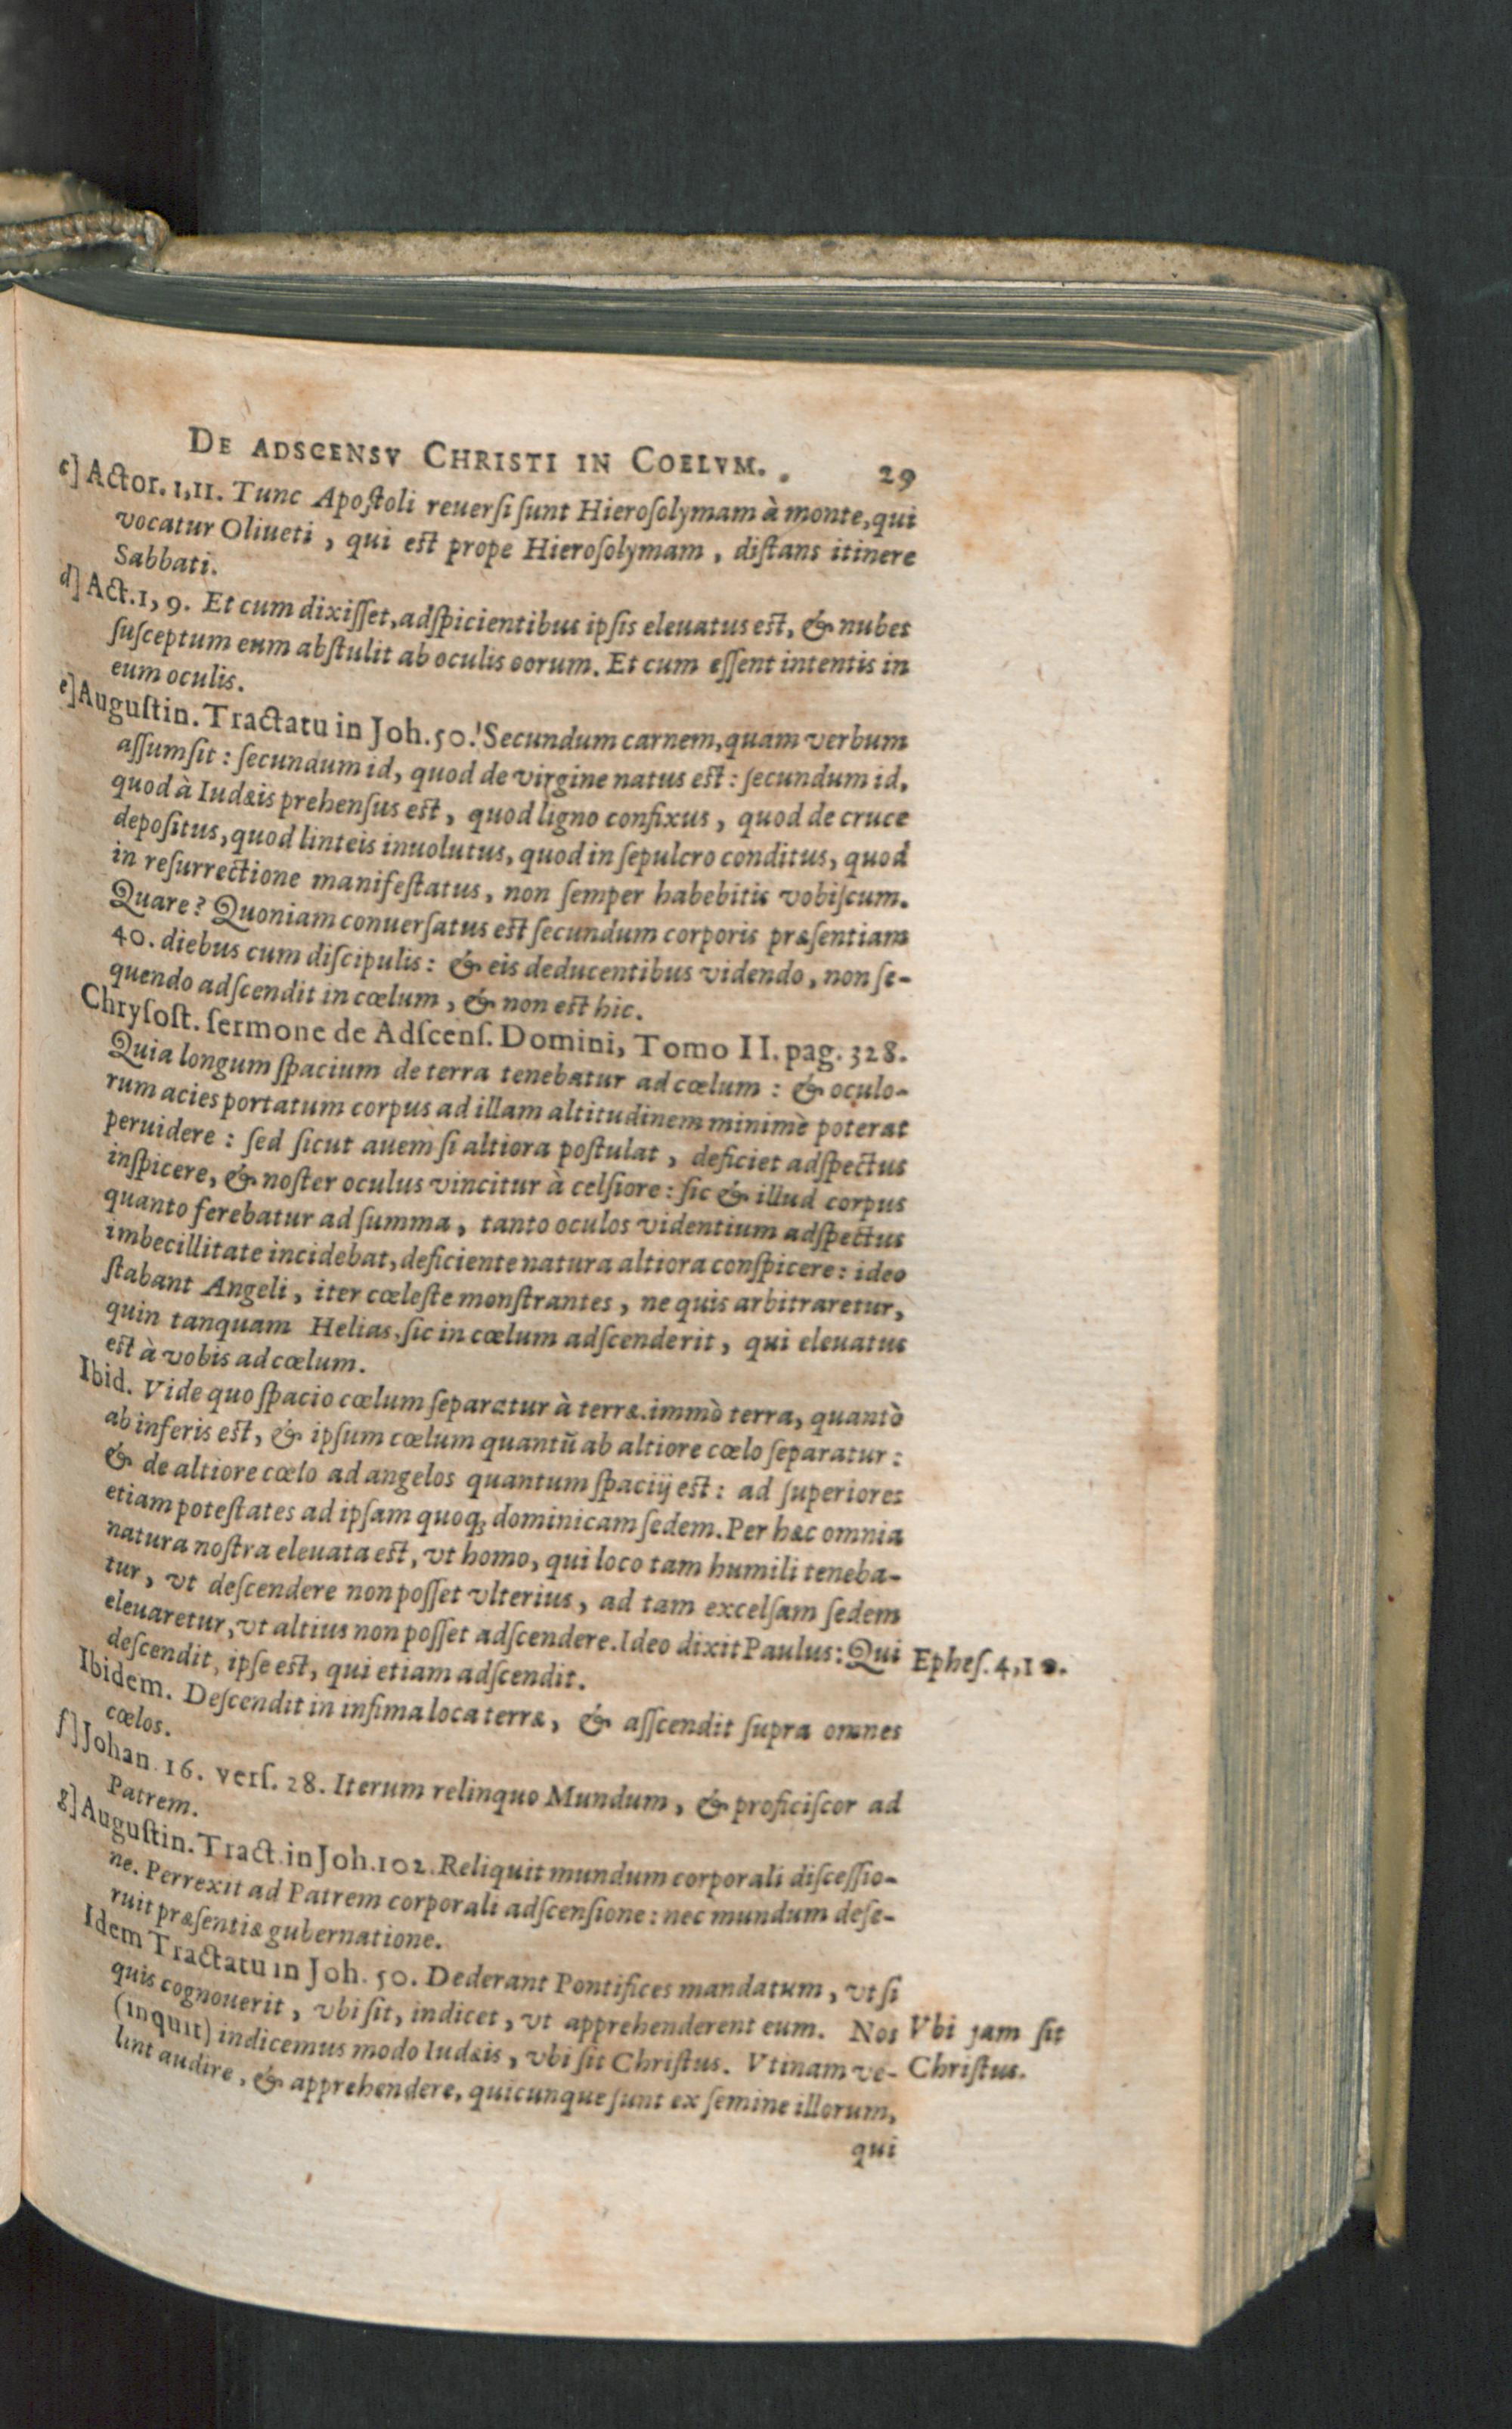 DE ADSCENSV CHRISTI IN COELVM. 29
c] Actor. 1,11. Tunc Apoſtoli reuerſi ſunt Hieroſolymam à monte, qui
vocatur Oliueti, qui est prope Hieroſolymam, diſtans itinere
Sabbati.
d] Act. 1, 9. Et cum dixiſſet, adſpicientibus ipſis eleuatus est, & nubes
ſuſceptum eum abſtulit ab oculis eorum. Et cum eſſent intentis in
eum oculis.
e] Auguſtin. Tractatu in Joh. 50. Secundum carnem, quam verbum
aſſumſit: ſecundum id, quod de virgine natus est: ſecundum id,
quod à Iudæis prehenſus est, quod ligno confixus, quod de cruce
depoſitus, quod linteis inuolutus, quod in ſepulcro conditus, quod
in reſurrectione manifeſtatus, non ſemper habebitis vobiſcum.
Quare? Quoniam conuerſatus est ſecundum corporis præſentiam
40. diebus cum diſcipulis: & eis deducentibus videndo, non ſe-
quendo adſcendit in cœlum, & non est hic.
Chryſoſt. ſermone de Adſcenſ. Domini, Tomo II. pag. 328.
Quia longum ſpacium de terra tenebatur ad cœlum: & oculo-
rum acies portatum corpus ad illam altitudinem minimè poterat
peruidere: ſed ſicut auem ſi altiora poſtulat, deficiet adſpectus
inſpicere, & noſter oculus vincitur à celſiore: ſic & illud corpus
quanto ferebatur ad ſumma, tanto oculos videntium adſpectus
imbecillitate incidebat, deficiente natura altiora conſpicere: ideo
ſtabant Angeli, iter cœleſte monſtrantes, ne quis arbitraretur,
quin tanquam Helias, ſic in cœlum adſcenderit, qui eleuatus
est à vobis ad cœlum.
Ibid. Vide quo ſpacio cœlum ſeparatur à terræ. immò terra, quantò
ab inferis est, & ipſum cœlum quantũ ab altiore cœlo ſeparatur:
& de altiore cœlo ad angelos quantum ſpacij est: ad ſuperiores
etiam poteſtates ad ipſam quoq; dominicam ſedem. Per hæc omnia
natura noſtra eleuata est, vt homo, qui loco tam humili teneba-
tur, vt deſcendere non poſſet vlterius, ad tam excelſam ſedem
eleuaretur, vt altius non poſſet adſcendere. Ideo dixit Paulus: Qui
Epheſ. 4,10.
deſcendit, ipſe est, qui etiam adſcendit.
Ibidem. Deſcendit in infima loca terræ, & aſſcendit ſupra omnes
cœlos.
f] Johan. 16. verſ. 28. Iterum relinquo Mundum, & proficiſcor ad
Patrem.
g] Auguſtin. Tract. in Joh. 102. Reliquit mundum corporali diſceſſio-
ne. Perrexit ad Patrem corporali adſcenſione: nec mundum deſe-
ruit præſentiæ gubernatione.
Idem Tractatu in Joh. 50. Dederant Pontifices mandatum, vt ſi
quis cognouerit, vbi ſit, indicet, vt apprehenderent eum. Nos
Vbi jam ſit
(inquit) indicemus modo Iudæis, vbi ſit Chriſtus. Vtinam ve-
Chriſtus.
lint audire, & apprehendere, quicunque ſunt ex ſemine illorum,
qui